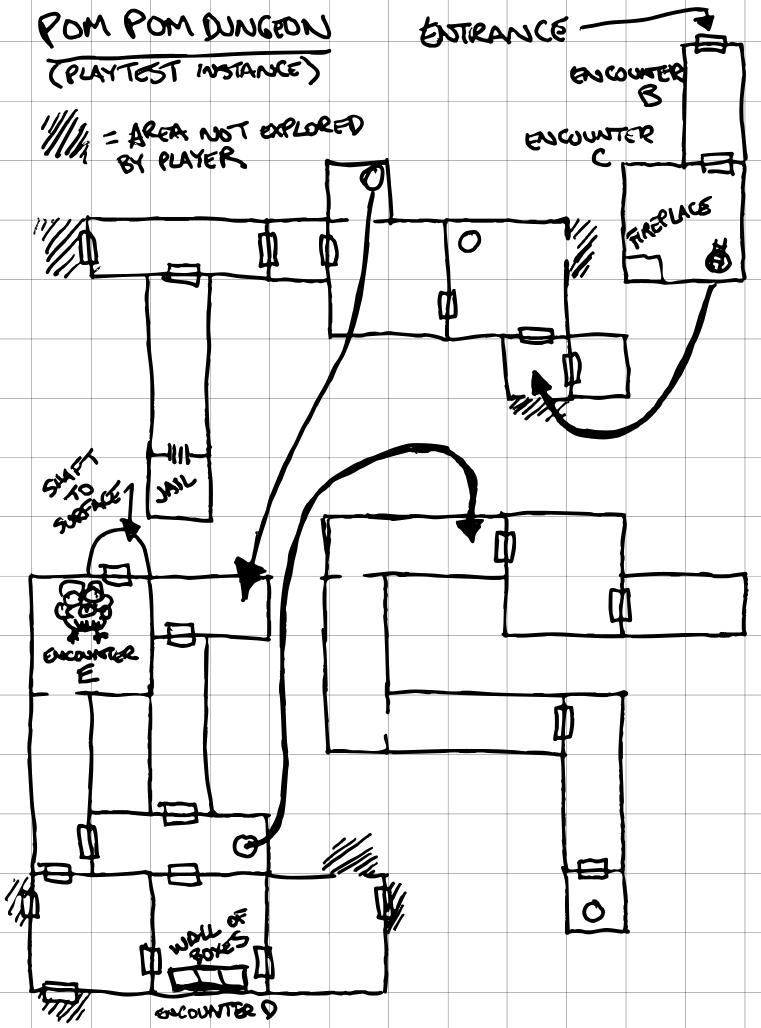 POM POM DUNGEON
(PLAYTEST INSTANCE)
ENTRANCE
ENCOUNTER
B
= AREA NOT EXPLORED
BY PLAYER
ENCOUNTER
C
FIREPLACE
JAIL
SHAFT
TO
SURFACE
ENCOUNTER
E
WALL OF
BOXES
ENCOUNTER D